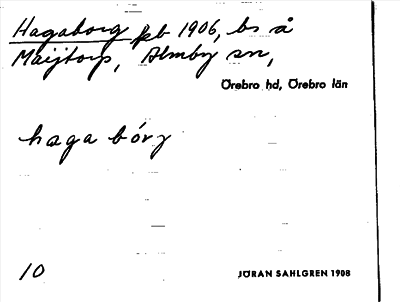 Hagaborg pb 1906, bs å
Maijtorp, Almby sn,
Örebro hd, Örebro län
haga bórg
10
JÖRAN SAHLGREN 1908